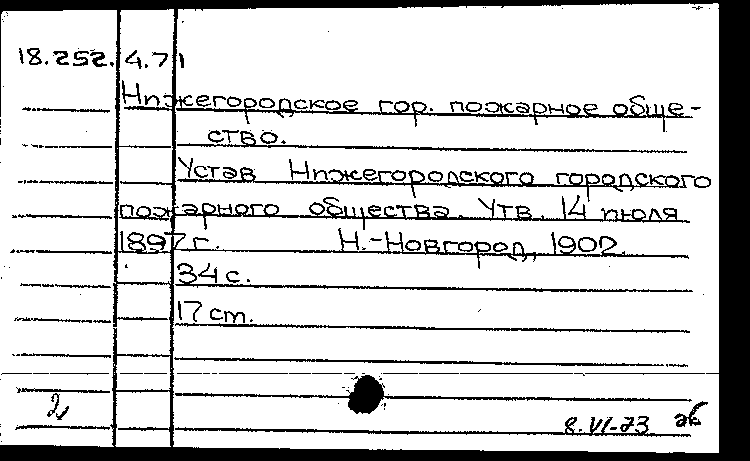 18.252.4.71
Нижегородское гор. пожарное обще-
ство.
Устав Нижегородского городского
пожарного общества. Утв. 14 июля
1897 г. Н.-Новгород, 1902.
34 с.
17 ст.
2
8.VI-73